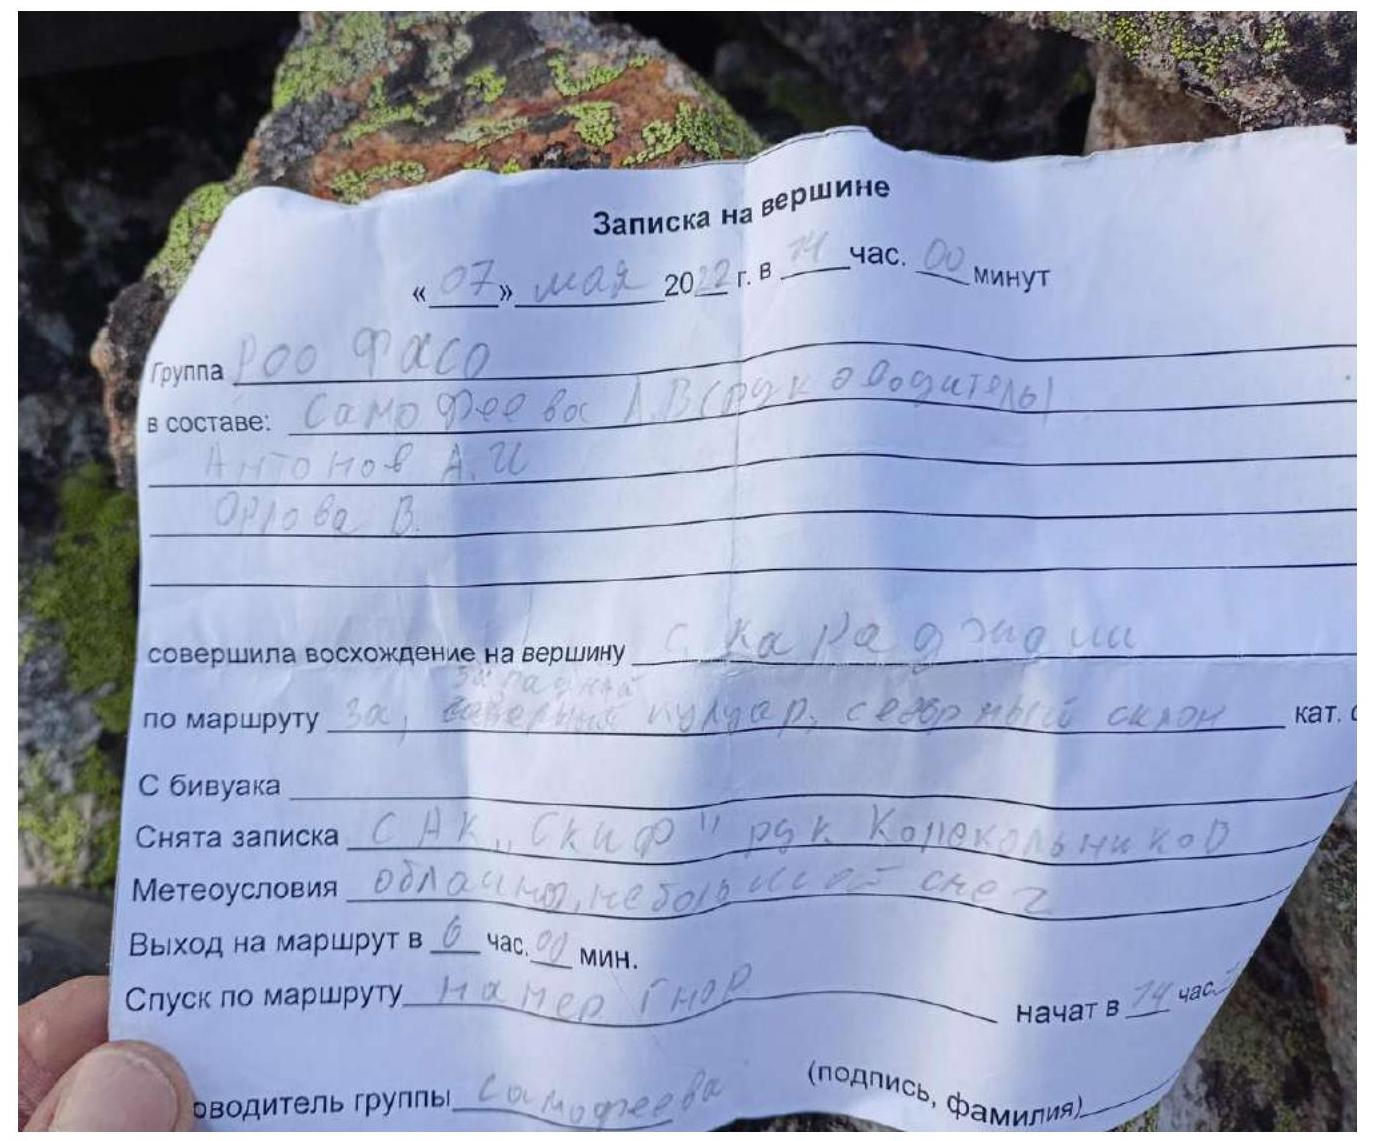 Записка на вершине
«07» мая 2022 г. в 14 час. 00 минут
Группа РОО ФАСО
в составе: Самофеева А.В (руководитель)
Антонов А.И
Орлова В.
совершила восхождение на вершину с Караджаш
по маршруту 3а, западный кулуар, северный склон кат. с
С бивуака
Снята записка САК "Скиф" рук Колокольников
Метеоусловия облачно, небольшой снег
Выход на маршрут в 6 час. 00 мин.
Спуск по маршруту на пер Гнор начат в 14 час.
оводитель группы Самофеева (подпись, фамилия)